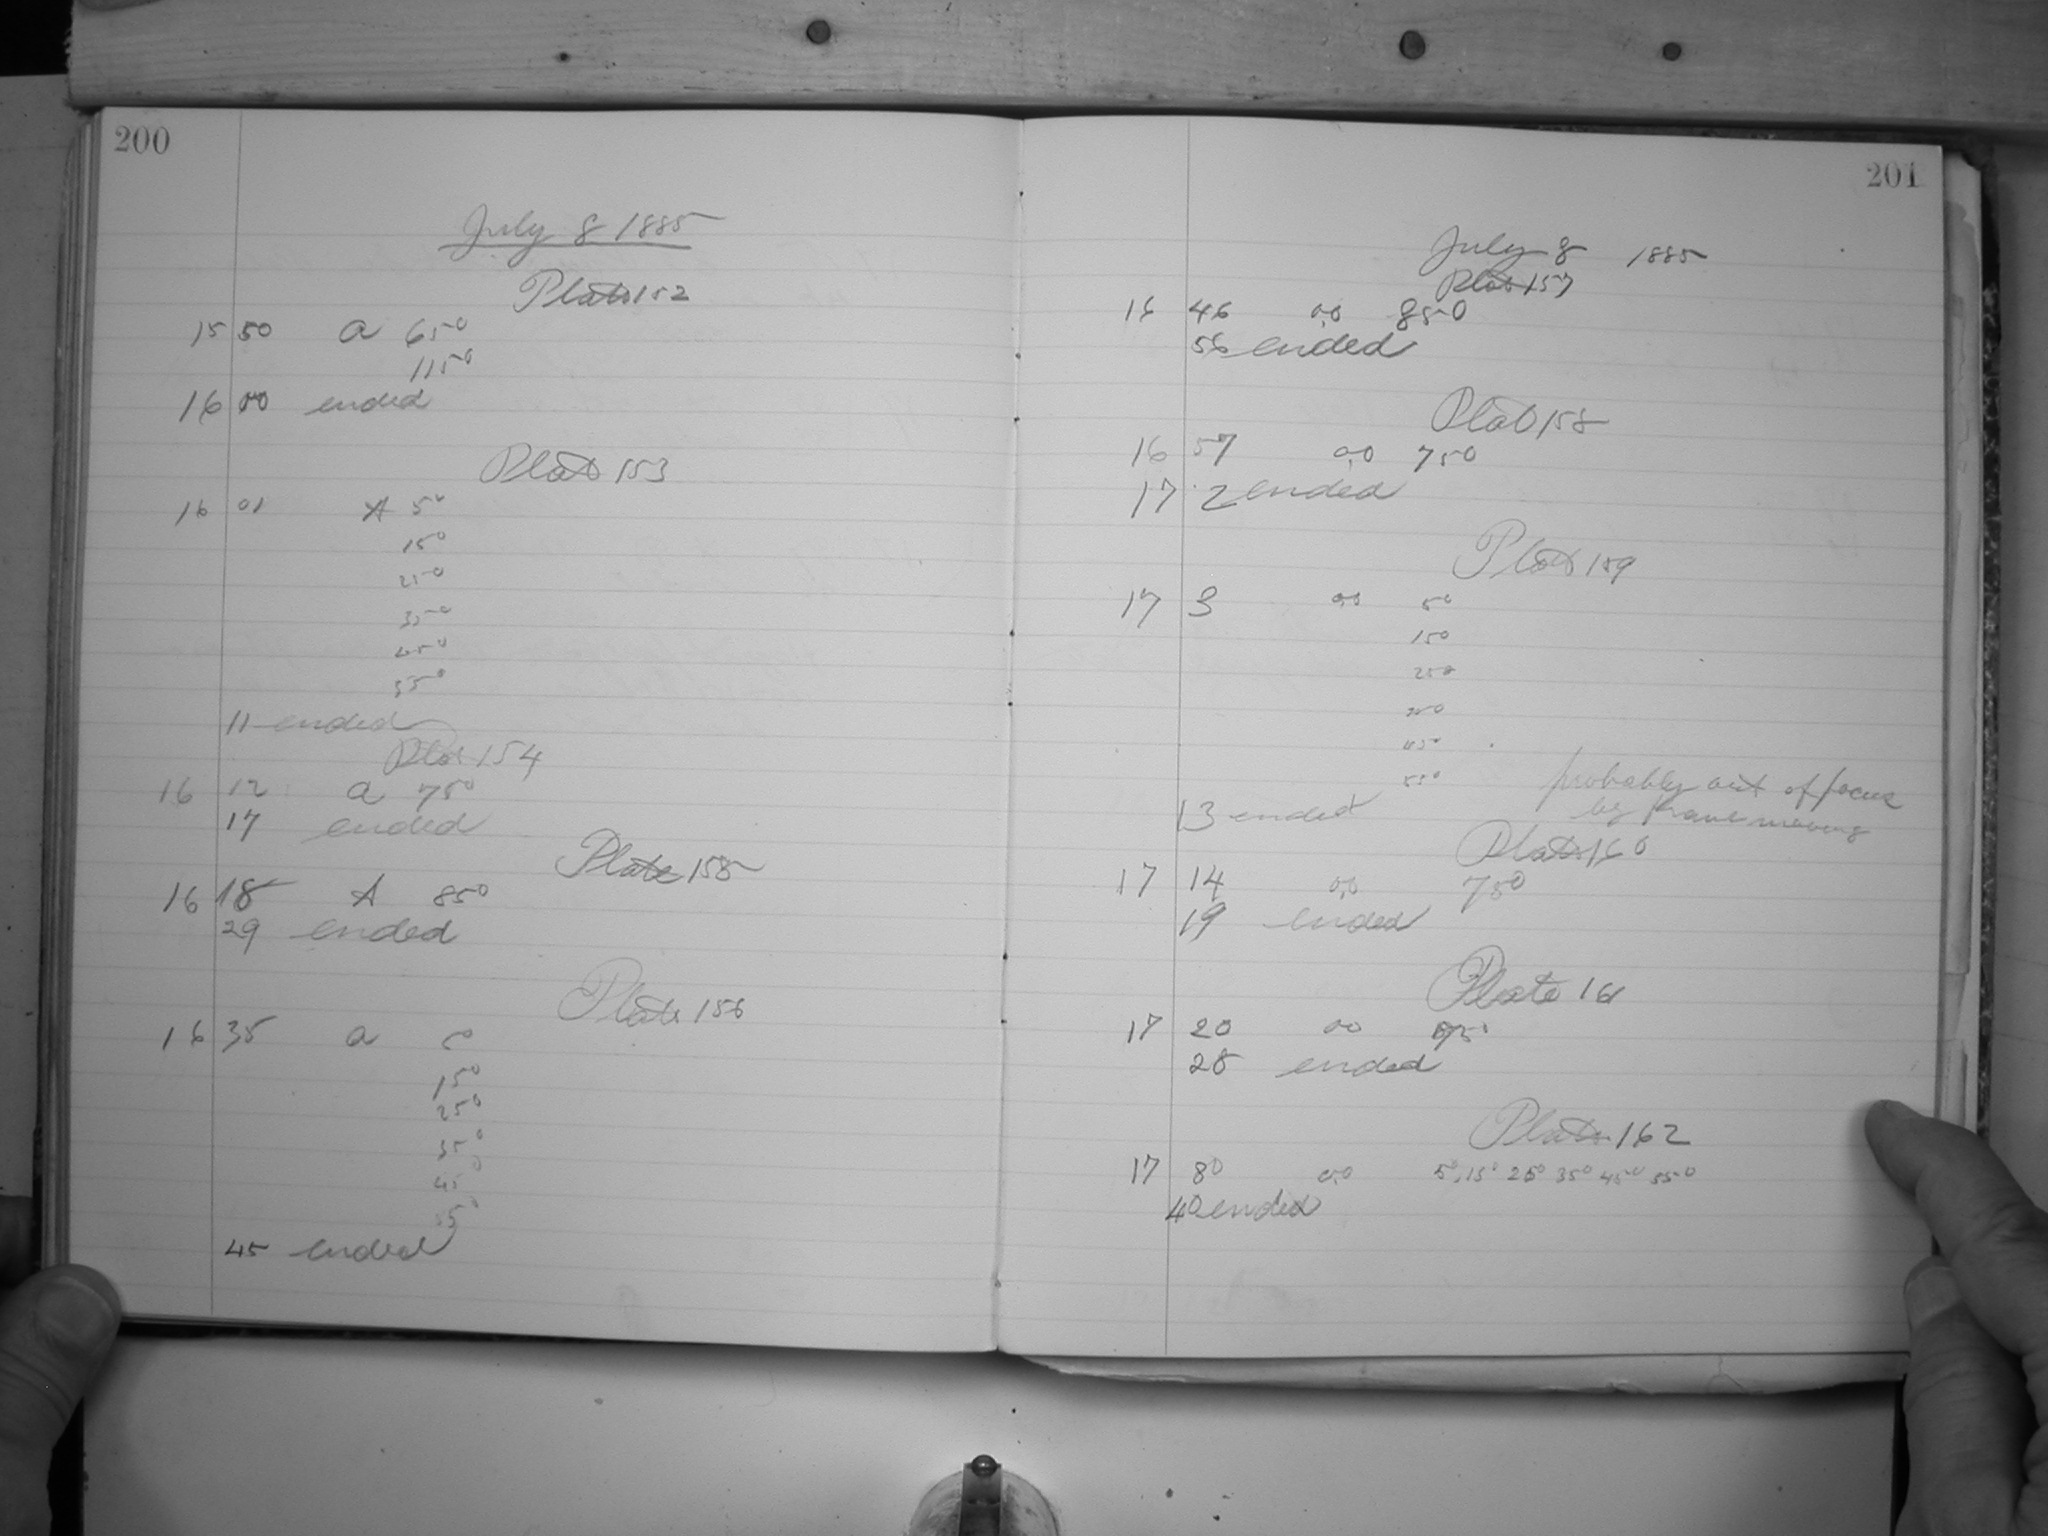 200
July 8 1885
Plate 152
15 50 a 65°
115°
16 00 ended
Plate 153
16 01 A 5°
15°
25°
35°
45°
55°
11 ended
Plate 154
16 12 a 75°
17 ended
Plate 155
16 18 A 85°
29 ended
Plate 156
16 35 a 5°
15°
25°
35°
45°
55°
45 ended
201
July 8 1885
Plate 157
16 46 0,0 85°
56 ended
Plate 158
16 57 0,0 75°
17 2 ended
Plate 159
17 3 0,0 5°
15°
25°
35°
45°
55°
probably out of focus
13 ended by frame moving
Plate 160
17 14 0,0 75°
19 ended
Plate 161
17 20 00
28 ended
Plate 162
17 0,0 5°, 15° 25° 35° 45° 55°
40 ended